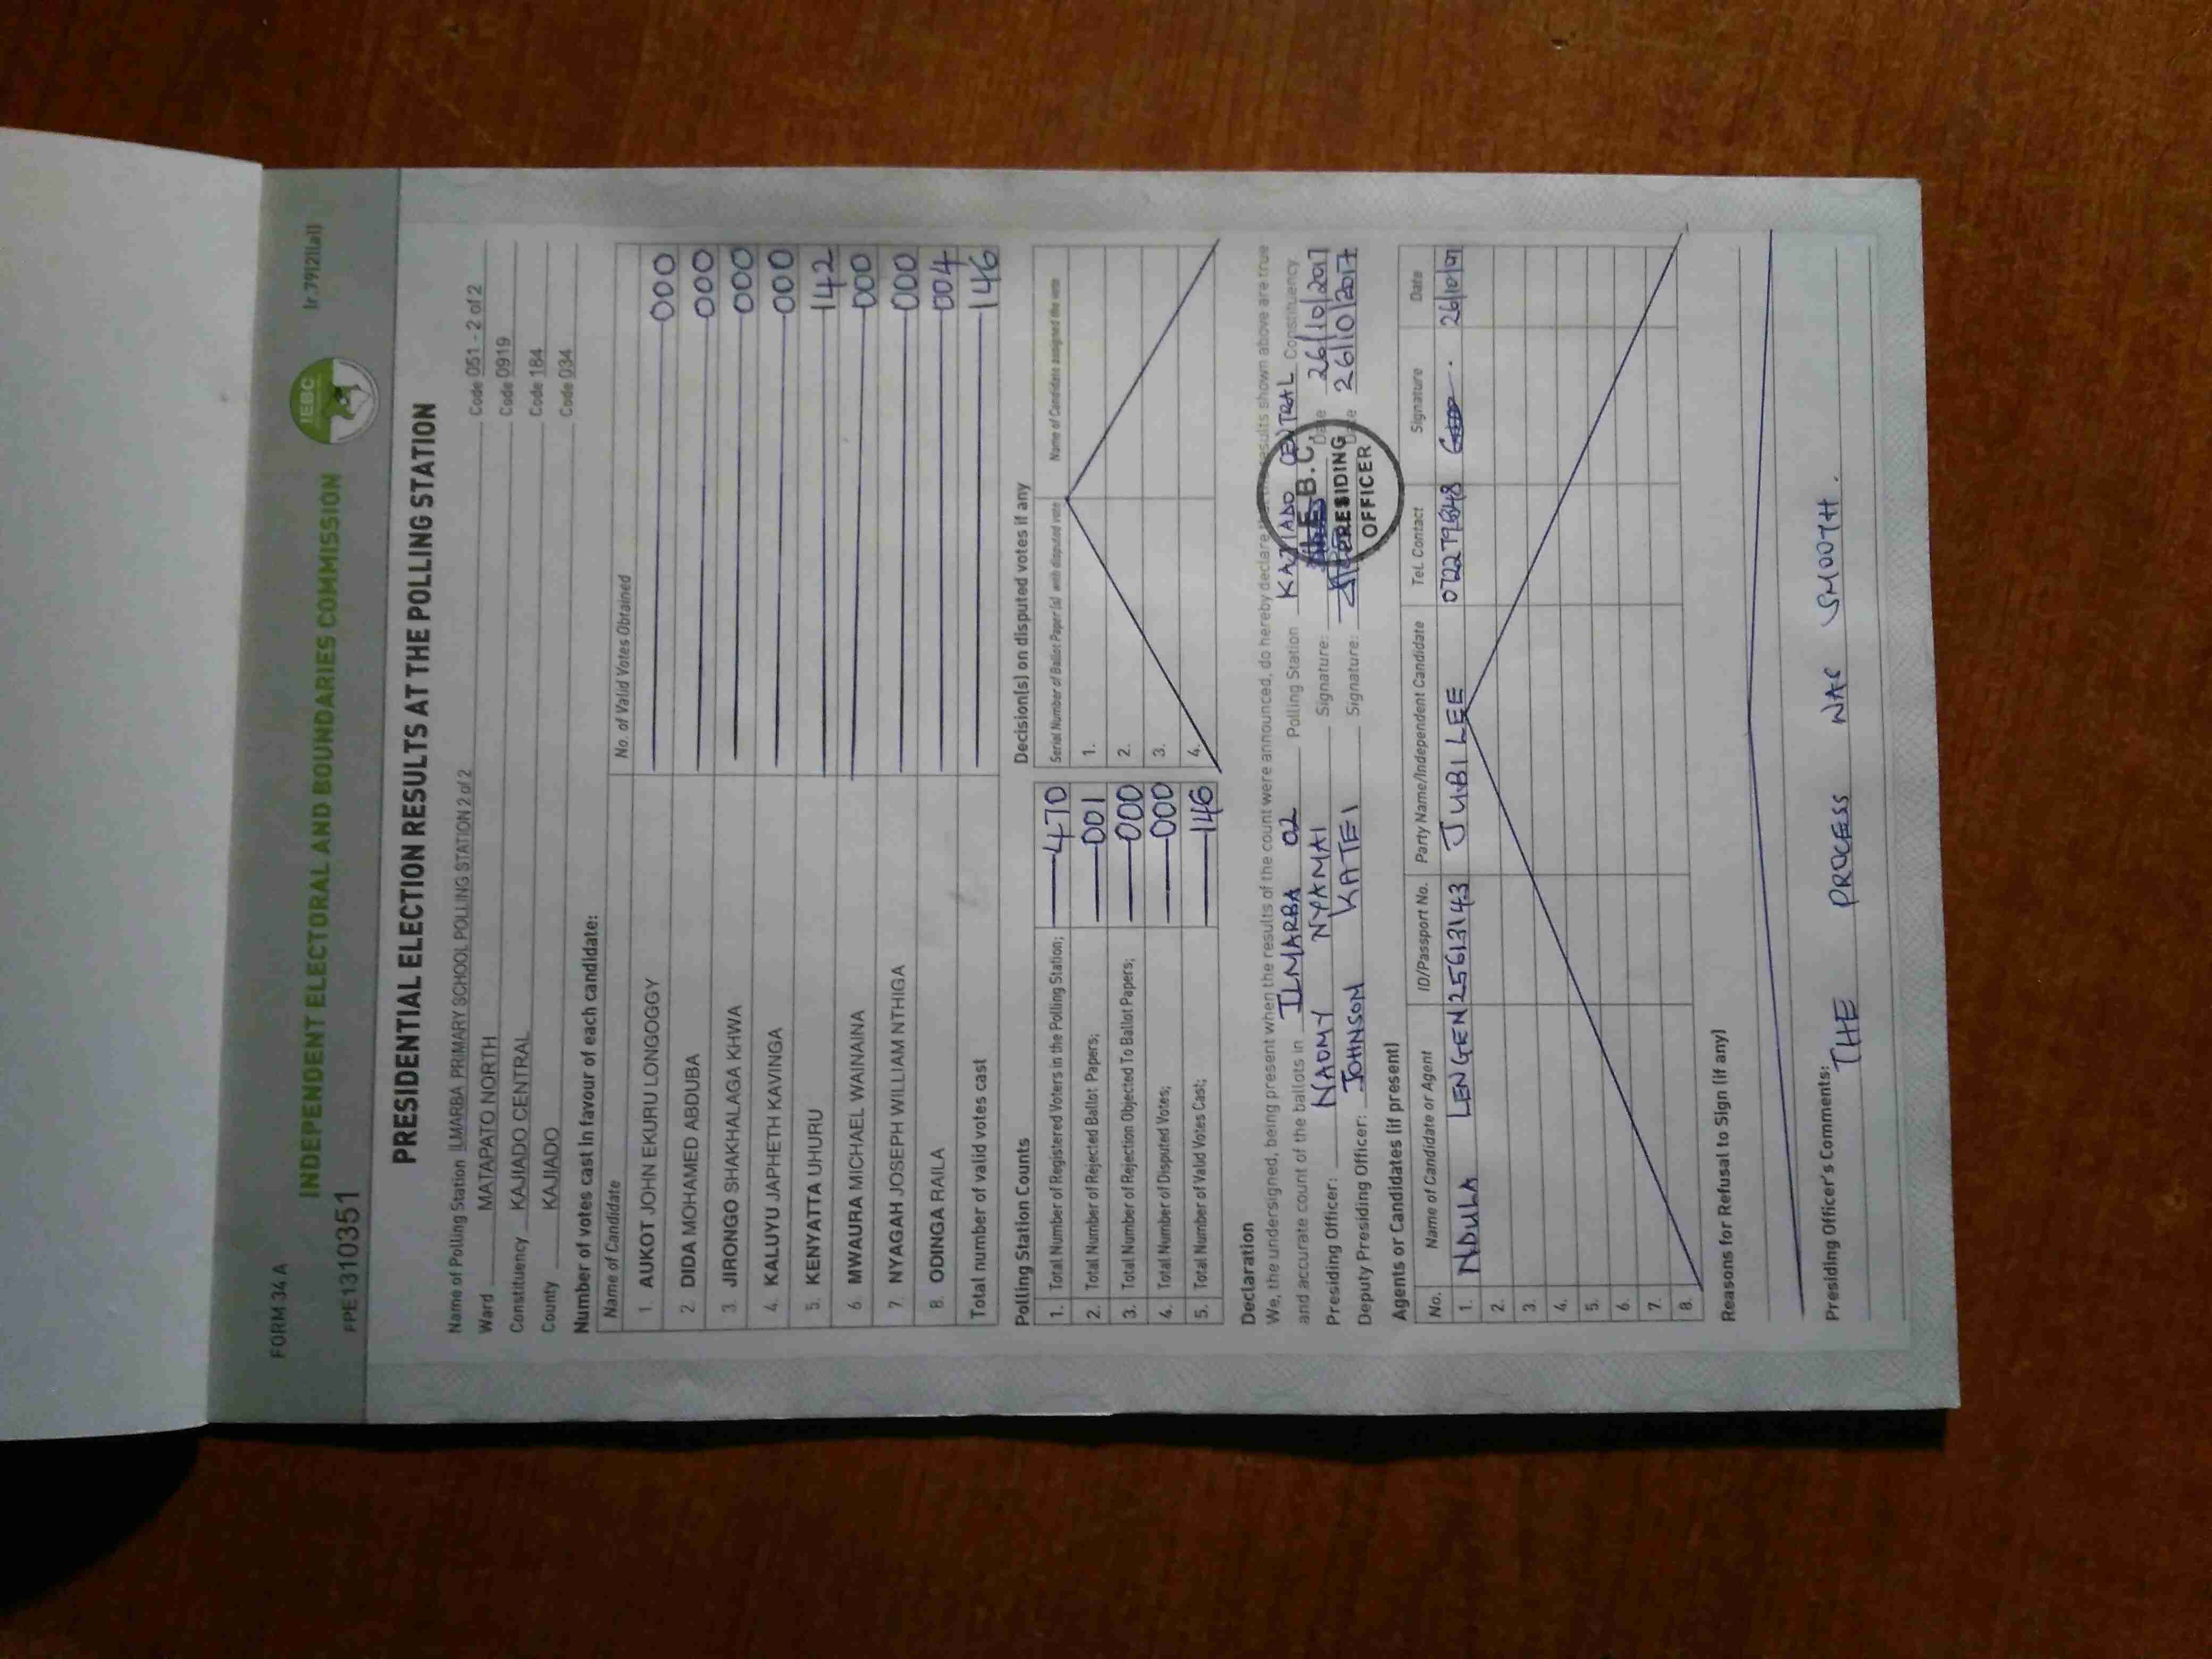 FORM 34 A
INDEPENDENT ELECTORAL AND BOUNDARIES COMMISSION
IEBC
FPE1310351
PRESIDENTIAL ELECTION RESULTS AT THE POLLING STATION
Name of Polling Station ILMARBA PRIMARY SCHOOL POLLING STATION 2 of 2 Code 051 - 2 of 2
Ward MATAPATO NORTH Code 0919
Constituency KAJIADO CENTRAL Code 184
County KAJIADO Code 034
Number of votes cast in favour of each candidate:
Name of Candidate No. of Valid Votes Obtained
1. AUKOT JOHN EKURU LONGOGGY 000
2. DIDA MOHAMED ABDUBA 000
3. JIRONGO SHAKHALAGA KHWA 000
4. KALUYU JAPHETH KAVINGA 000
5. KENYATTA UHURU 142
6. MWAURA MICHAEL WAINAINA 000
7. NYAGAH JOSEPH WILLIAM NTHIGA 000
8. ODINGA RAILA 004
Total number of valid votes cast 146
Polling Station Counts
1. Total Number of Registered Voters in the Polling Station; 470
2. Total Number of Rejected Ballot Papers; 001
3. Total Number of Rejection Objected To Ballot Papers; 000
4. Total Number of Disputed Votes; 000
5. Total Number of Valid Votes Cast; 146
Decision(s) on disputed votes if any
Serial Number of Ballot Paper(s) with disputed vote Name of Candidate assigned the vote
1.
2.
3.
4.
Declaration
We, the undersigned, being present when the results of the count were announced, do hereby declare that the results shown above are true
and accurate count of the ballots in ILMARBA 02 Polling Station KAJIADO CENTRAL Constituency
Presiding Officer: NAOMY NYAMAI Signature: Date 26/10/2017
Deputy Presiding Officer: JOHNSON KATEI Signature: Date 26/10/2017
I.E.B.C.
PRESIDING
OFFICER
Agents or Candidates (if present)
No. Name of Candidate or Agent ID/Passport No. Party Name/Independent Candidate Tel. Contact Signature Date
1. NDULA LENGEN 25613143 JUBILEE 26/10/17
2.
3.
4.
5.
6.
7.
8.
Reasons for Refusal to Sign (if any)
Presiding Officer's Comments:
THE PROCESS WAS SMOOTH.